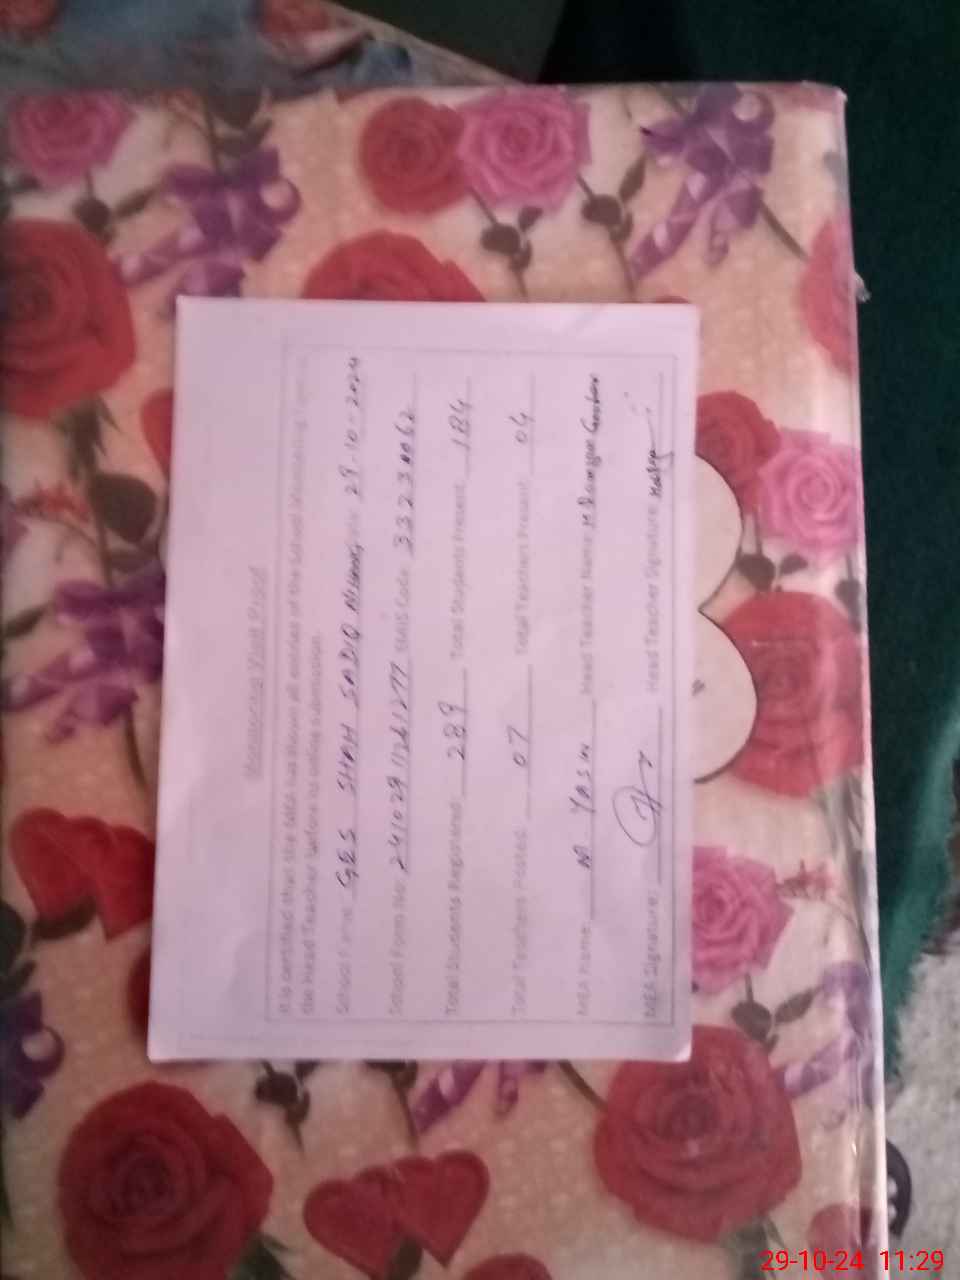 Monitoring Visit Proof
It is certified that Mr/ Miss has shown all entries of the School Monitoring Form to
the Head Teacher before its online submission.
School Name: GES SHAH SADIQ Date 29-10-2024
School Form No: EMIS Code
Total Students Registered: 289 Total Students Present: 184
Total Teachers Posted: 07 Total Teachers Present: 04
MEA Name: M YASIN Head Teacher Name:
MEA Signature: Head Teacher Signature:
29-10-24 11:29